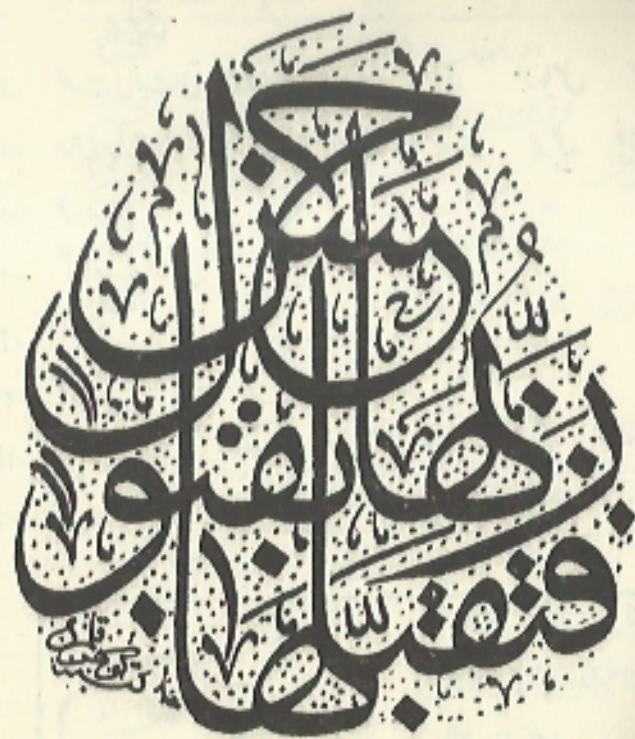 فَتَقَبَّلَهَا
رَبُّهَا بِقَبُولٍ
حَسَنٍ